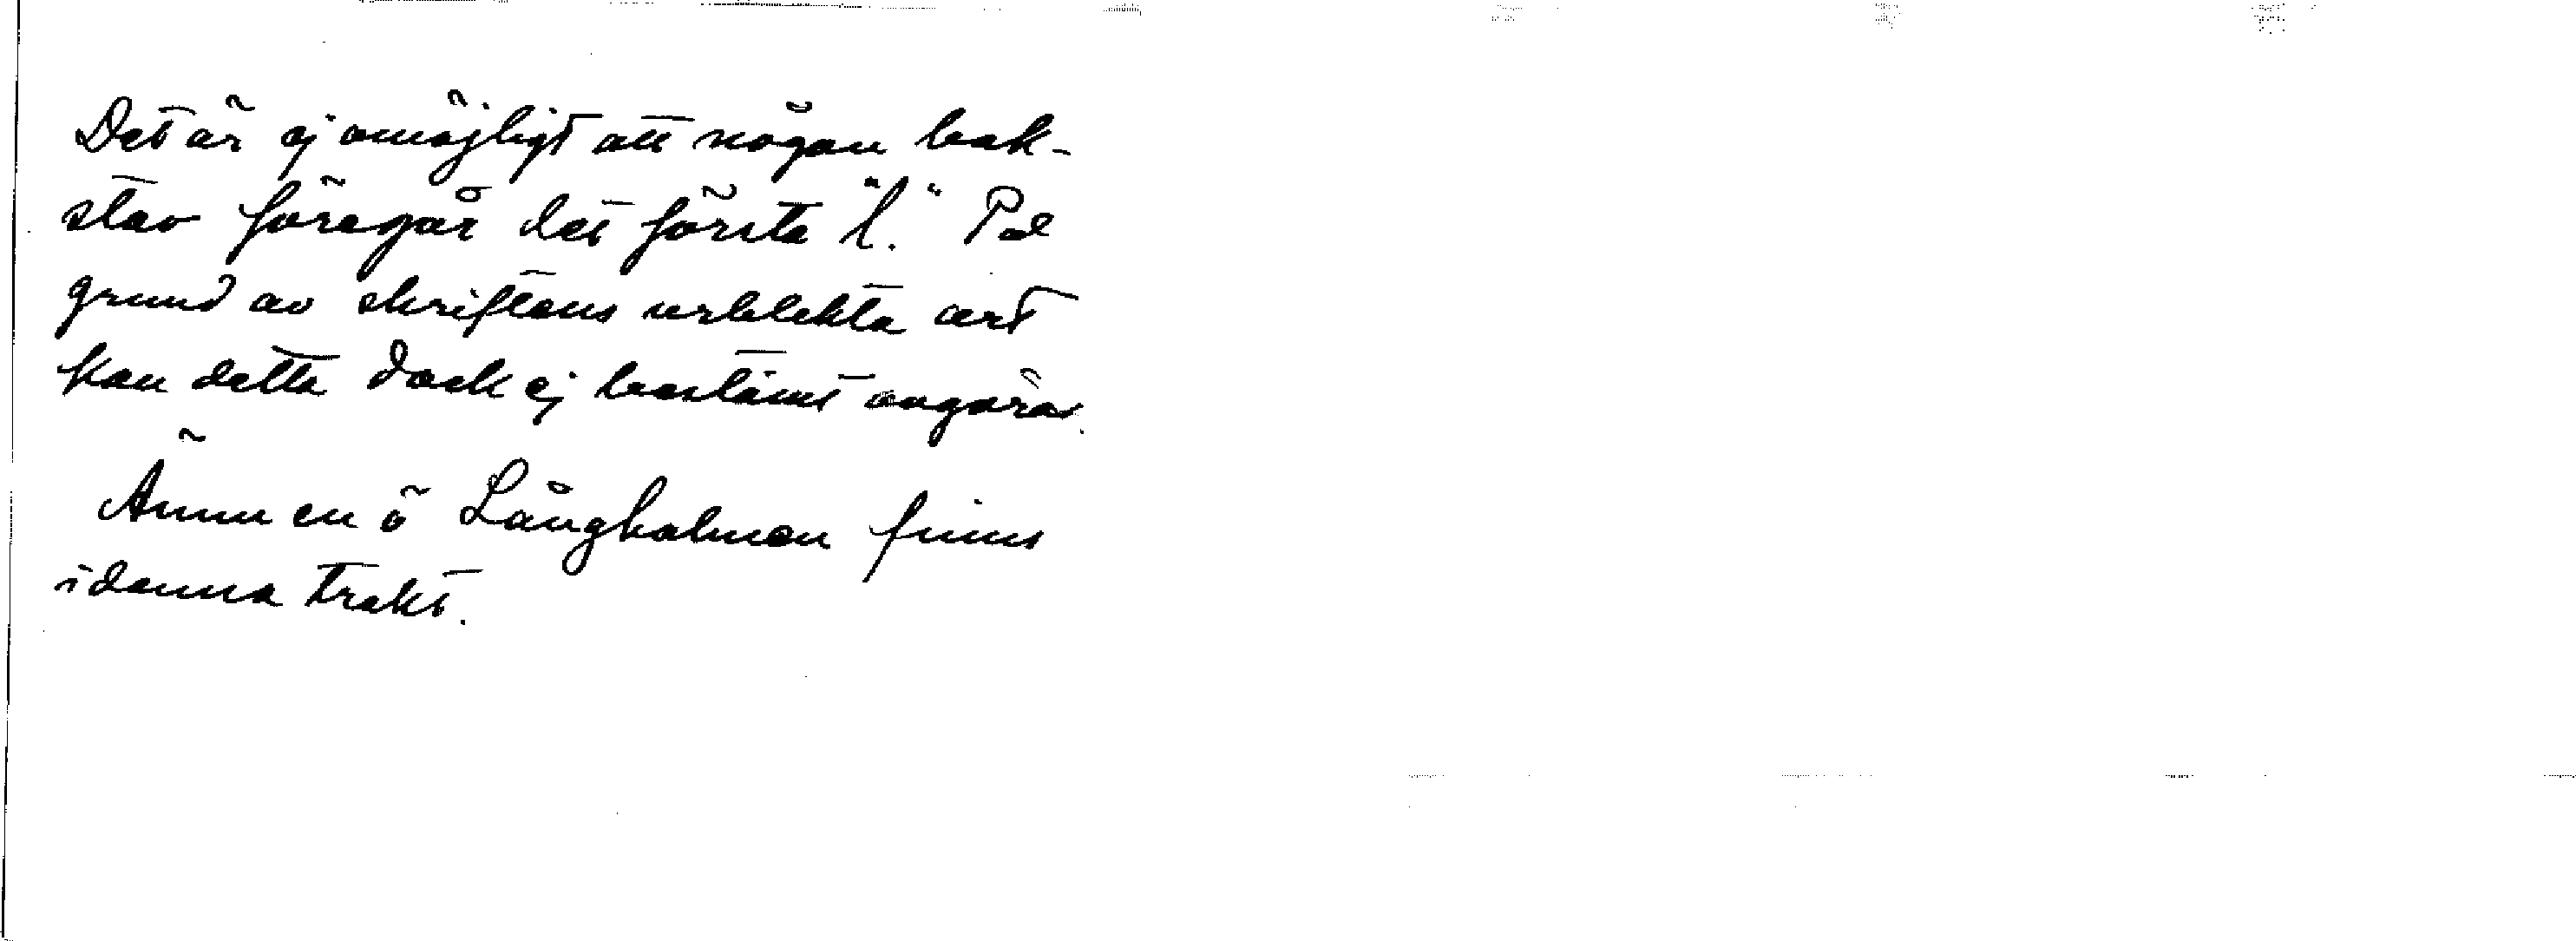 Det är ej omöjligt att någon bok-
stav föregår det första "l." På
grund av skriftens urblekta art
kan detta dock ej bestämt avgöras.
Ännu en ö Långholmen finns
i denna trakt.